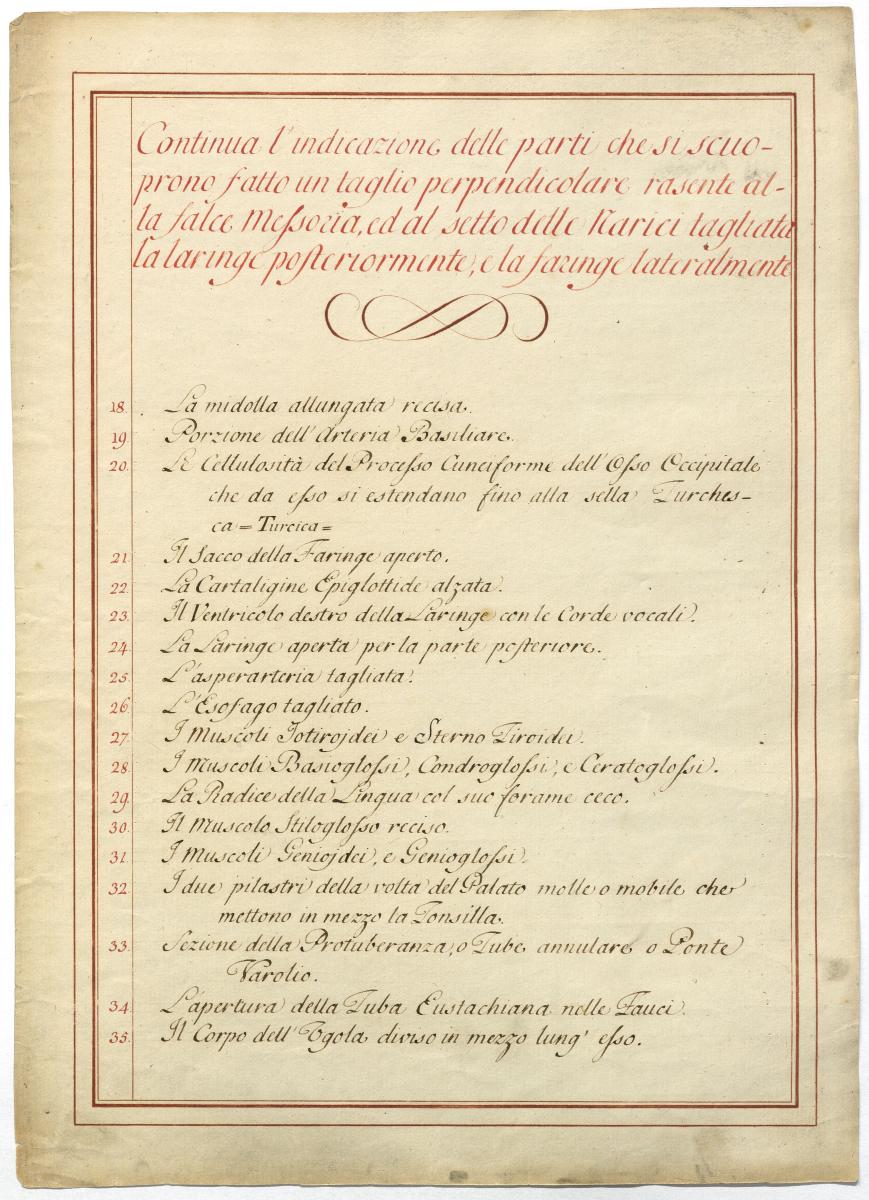 Continua l'indicazione delle parti che si scuo-
prono fatto un taglio perpendicolare rasente al-
la falce Messoria, ed al setto delle Narici tagliata
la laringe posteriormente, e la faringe lateralmente
18. La midolla allungata recisa.
19. Porzione dell'Arteria Basiliare.
20. Le Cellulosità del Processo Cuneiforme dell'Osso Occipitale
che da esso si estendano fino alla sella Turches-
ca = Turcica =
21. Il Sacco della Faringe aperto.
22. La Cartaligine Epiglottide alzata.
23. Il Ventricolo destro della Laringe con le Corde vocali.
24. La Laringe aperta per la parte posteriore.
25. L'asperarteria tagliata.
26. L'Esofago tagliato.
27. I Muscoli Jotirojdei e Sterno Tiroidei.
28. I Muscoli Basioglossi, Condroglossi, e Ceratoglossi.
29. La Radice della Lingua col suo forame ceco.
30. Il Muscolo Stiloglosso reciso.
31. I Muscoli Geniojdei, e Genioglossi.
32. I due pilastri della volta del Palato molle o mobile che
mettono in mezzo la Tonsilla.
33. Sezione della Protuberanza, o Tube annulare o Ponte
Varolio.
34. L'apertura della Tuba Eustachiana nelle Fauci.
35. Il Corpo dell' Ugola diviso in mezzo lung' esso.